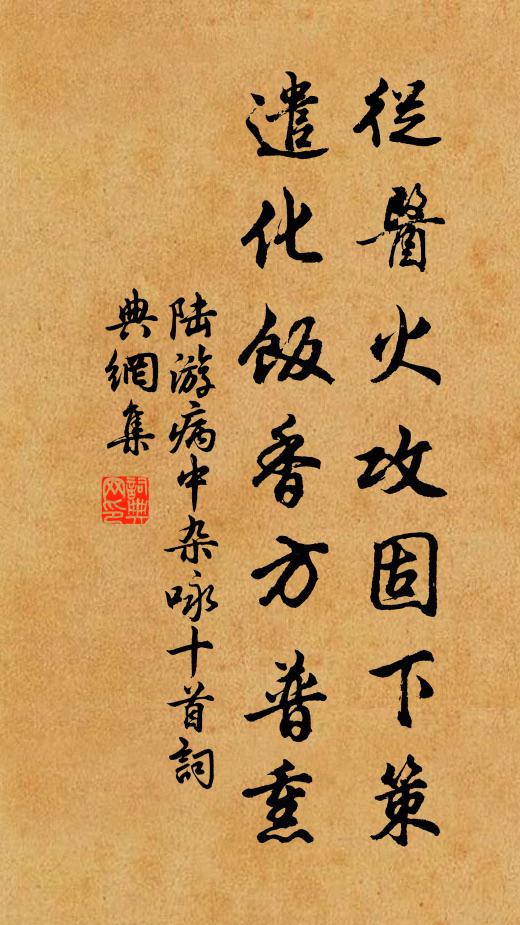 從醫火攻固下策
遣化飯香方普熏
陆游病中杂咏十首詞
典網集
詞典網印